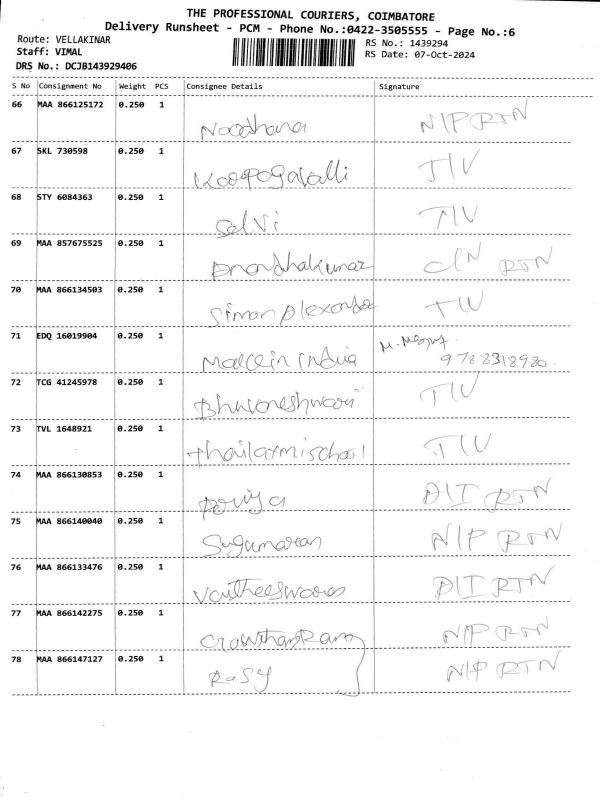 THE PROFESSIONAL COURIERS, COIMBATORE
Delivery Runsheet - PCM - Phone No.:0422-3505555 - Page No.:6
Route: VELLAKINAR
RS No.: 1439294
Staff: VIMAL
RS Date: 07-Oct-2024
DRS No.: DCJB143929406
S No Consignment No Weight PCS Consignee Details Signature
66 MAA 866125172 0.250 1 N/P RTN
67 SKL 730598 0.250 1 T/V
68 STY 6084363 0.250 1 Selvi T/V
69 MAA 857675525 0.250 1 RTN
70 MAA 866134503 0.250 1 Simon T/V
71 EDQ 16019904 0.250 1 India 9788318980
72 TCG 41245978 0.250 1 Bhuvaneshwari T/V
73 TVL 1648921 0.250 1 T/V
74 MAA 866130853 0.250 1 D/I RTN
75 MAA 866140040 0.250 1 Sugumaran N/P RTN
76 MAA 866133476 0.250 1 D/I RTN
77 MAA 866142275 0.250 1 N/P RTN
78 MAA 866147127 0.250 1 N/P RTN